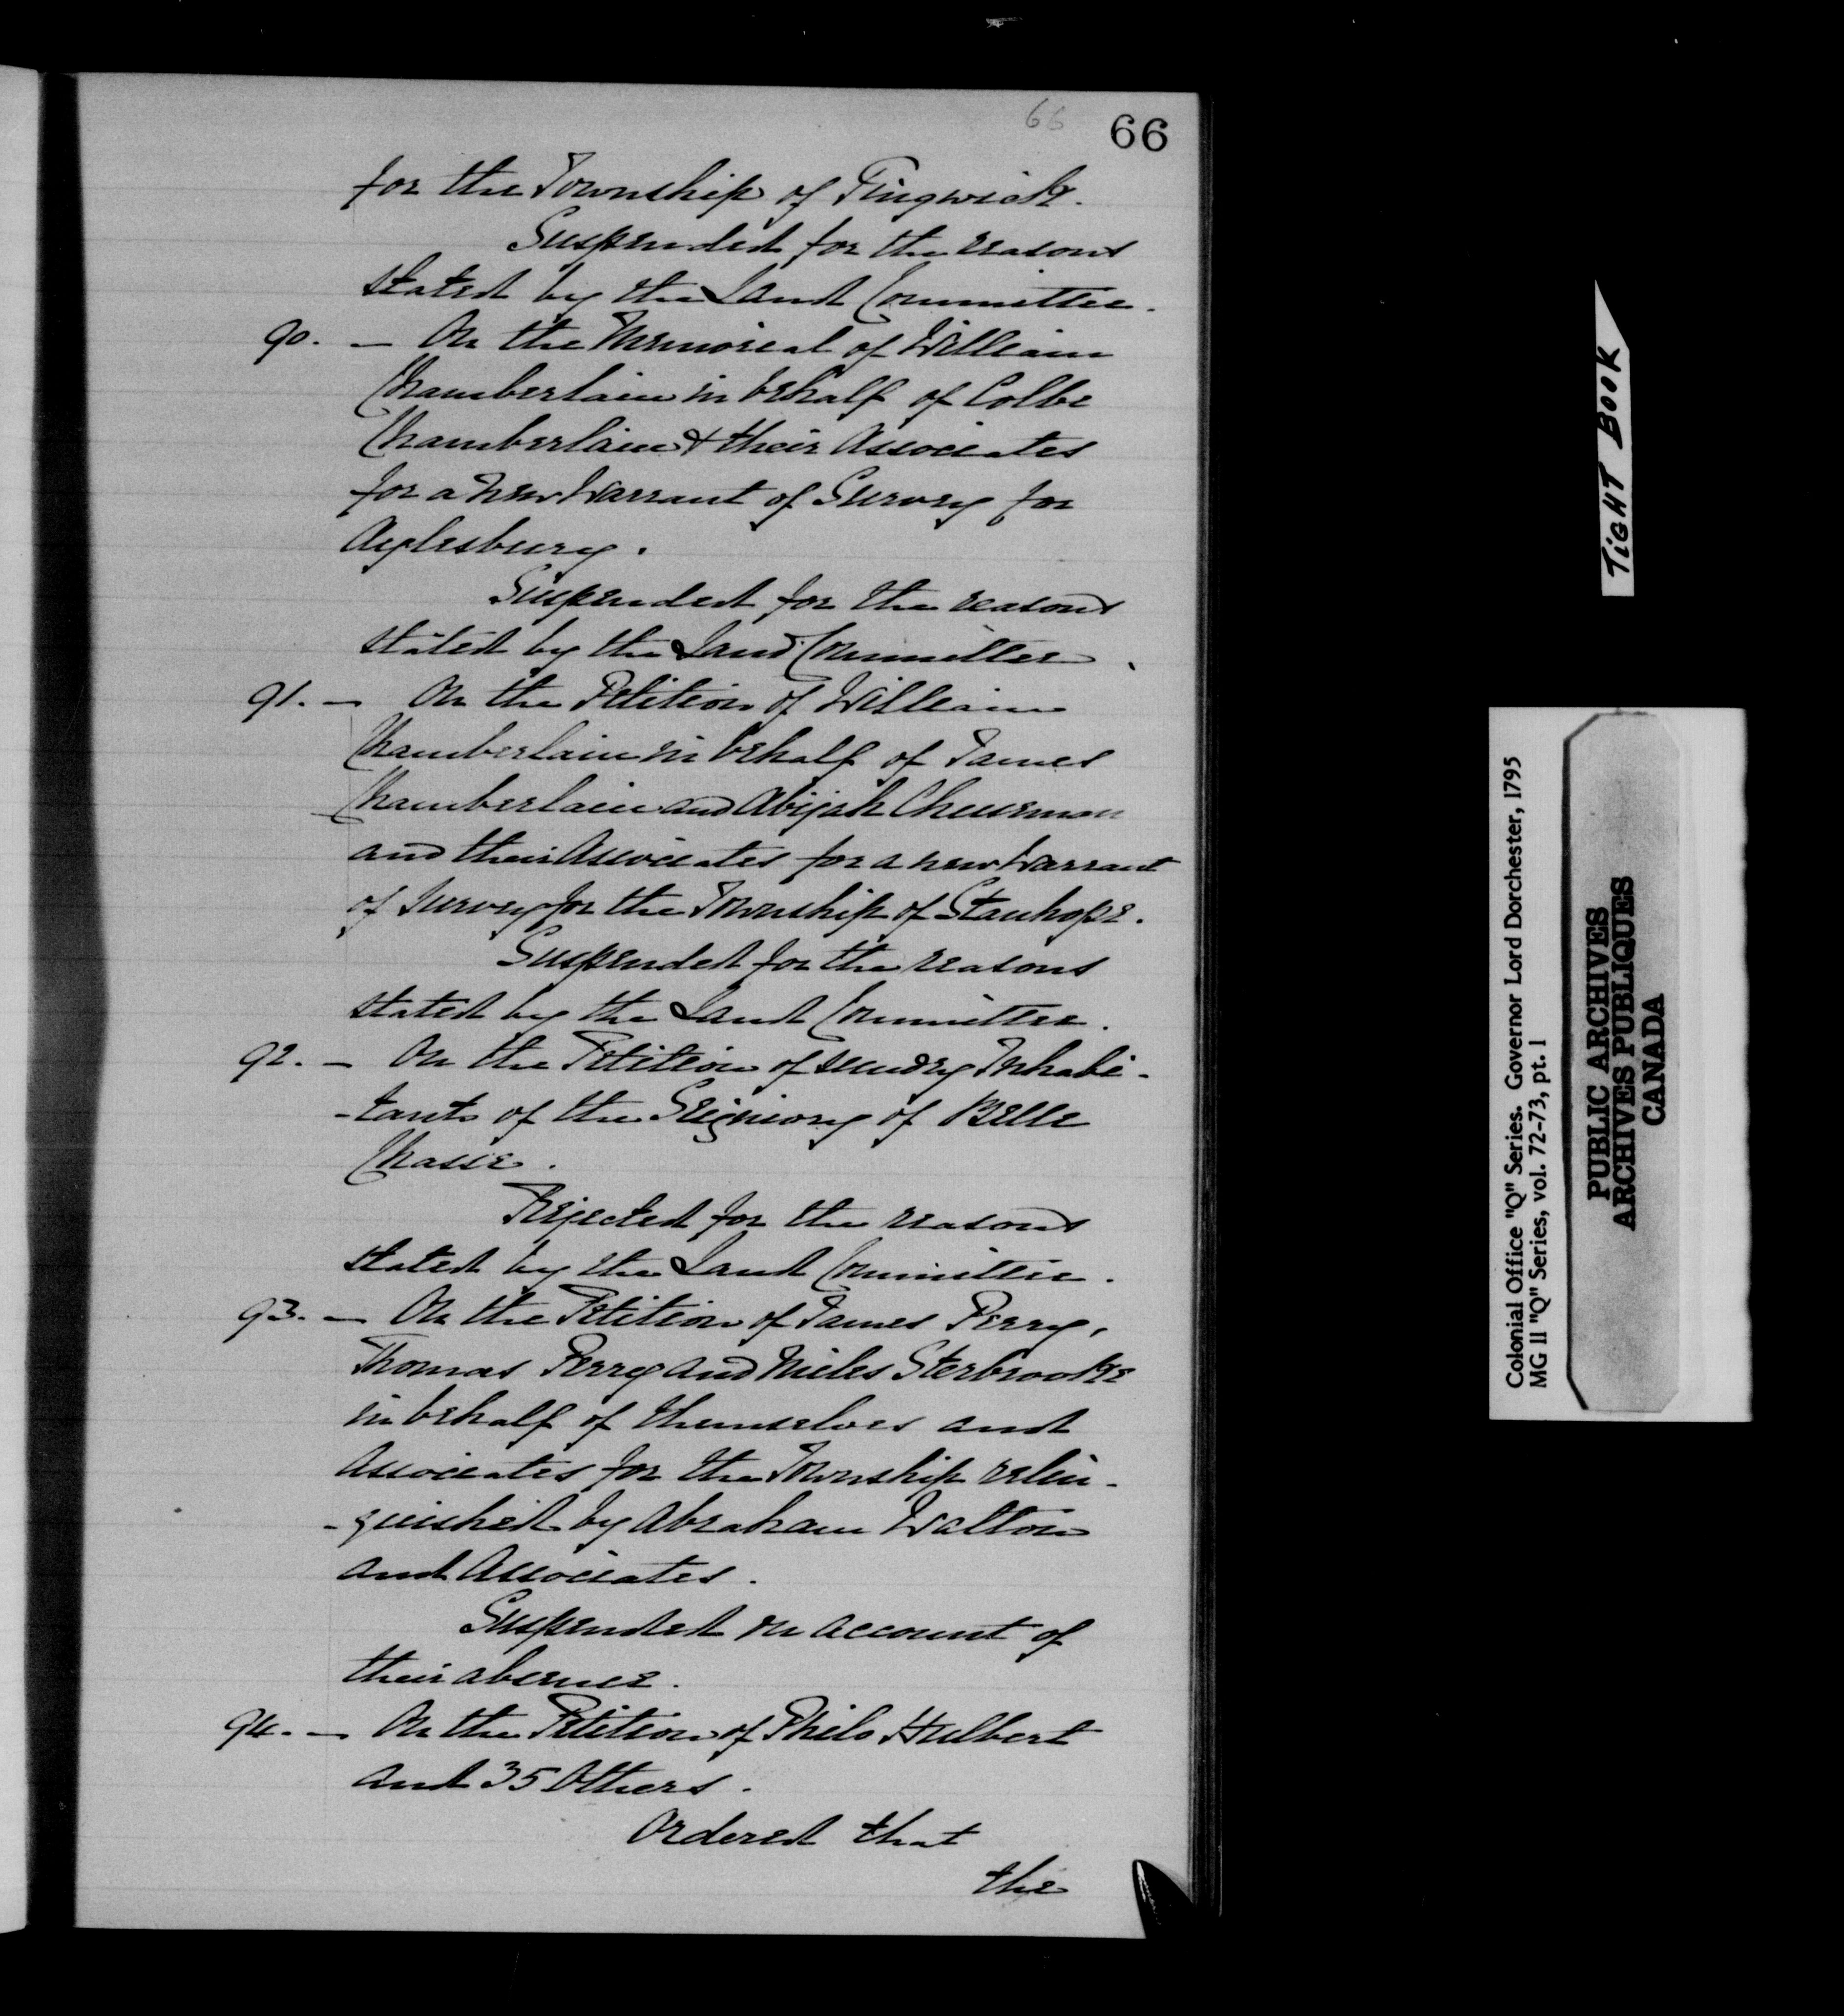 66
66
for the Township of Tingwick.
Suspended for the reasons
stated by the Land Committee.
90. — On the Memorial of William
Chamberlain in behalf of Colbe
Chamberlain & their Associates
for a new Warrant of Survey for
Aylesbury.
Suspended for the reasons
stated by the Land Committee.
91. — On the Petition of William
Chamberlain in behalf of James
Chamberlain and Abijah Cheesman
and their Associates for a new Warrant
of Survey for the Township of Stanhope.
Suspended for the reasons
stated by the Land Committee.
92. — On the Petition of sundry Inhabi-
-tants of the Seigniory of Belle
Chasse.
Rejected for the reasons
stated by the Land Committee.
93. — On the Petition of James Perry,
Thomas Perry and Miles Sterbrooke
in behalf of themselves and
Associates for the Township relin-
-quished by Abraham Walton
and Associates.
Suspended on account of
their absence.
94. — On the Petition of Philo Hulbert
and 35 Others.
Ordered that
the
TIGHT BOOK
Colonial Office "Q" Series. Governor Lord Dorchester, 1795
MG 11 "Q" Series, vol. 72-73, pt. 1
PUBLIC ARCHIVES
ARCHIVES PUBLIQUES
CANADA